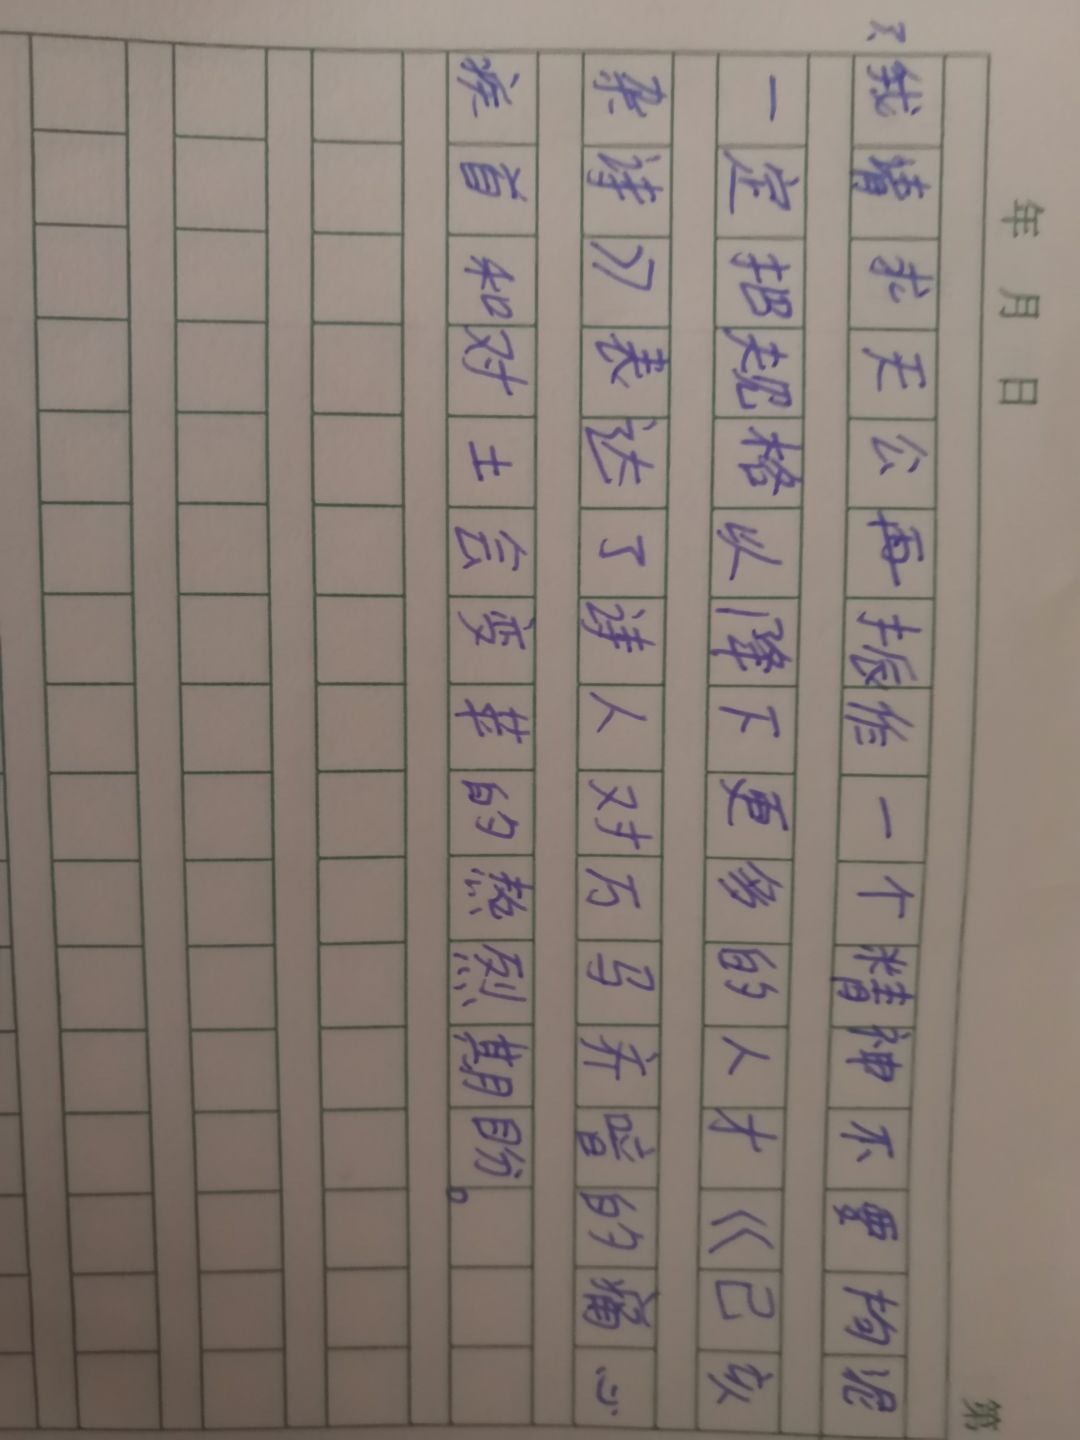 年 月 日
第
3、我请求天公再振作一个精神不要拘泥
一定把规格以降下更多的人才《己亥
杂诗》表达了诗人对万马齐喑的痛心
疾首和对土会变革的热烈期盼。